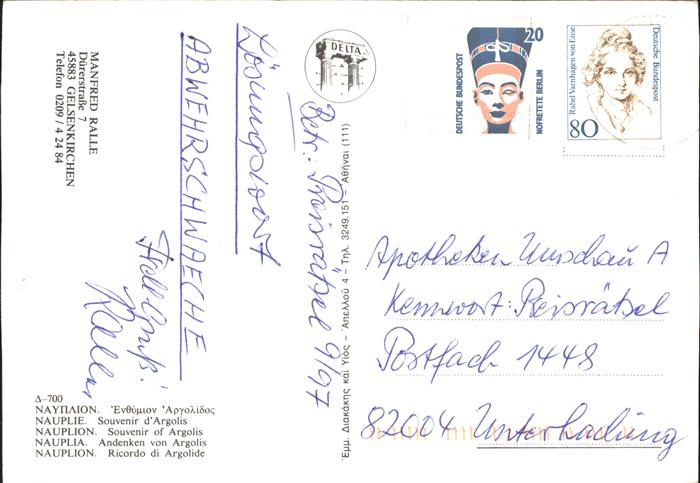 MANFRED RALLE
Dürerstraße 7
45883 GELSENKIRCHEN
Telefon 0209 / 4 24 84
Betr.: Preisrätsel 9/97
Lösungswort
ABWEHRSCHWAECHE
Ralle
Δ–700
ΝΑΥΠΛΙΟΝ. Ἐνθύμιον Ἀργολίδος
NAUPLIE. Souvenir d'Argolis
NAUPLION. Souvenir of Argolis
NAUPLIA. Andenken von Argolis
NAUPLION. Ricordo di Argolide
DELTA
Ἐμμ. Διακάκης καὶ Υἱὸς – Ἀπελλοῦ 4 – Τηλ. 3249.151 – Ἀθῆναι (111)
DEUTSCHE BUNDESPOST
20
NOFRETETE BERLIN
Rahel Varnhagen von Ense
80
Deutsche Bundespost
Apotheken Umschau A
Kennwort: Preisrätsel
Postfach 1448
82004 Unterhaching